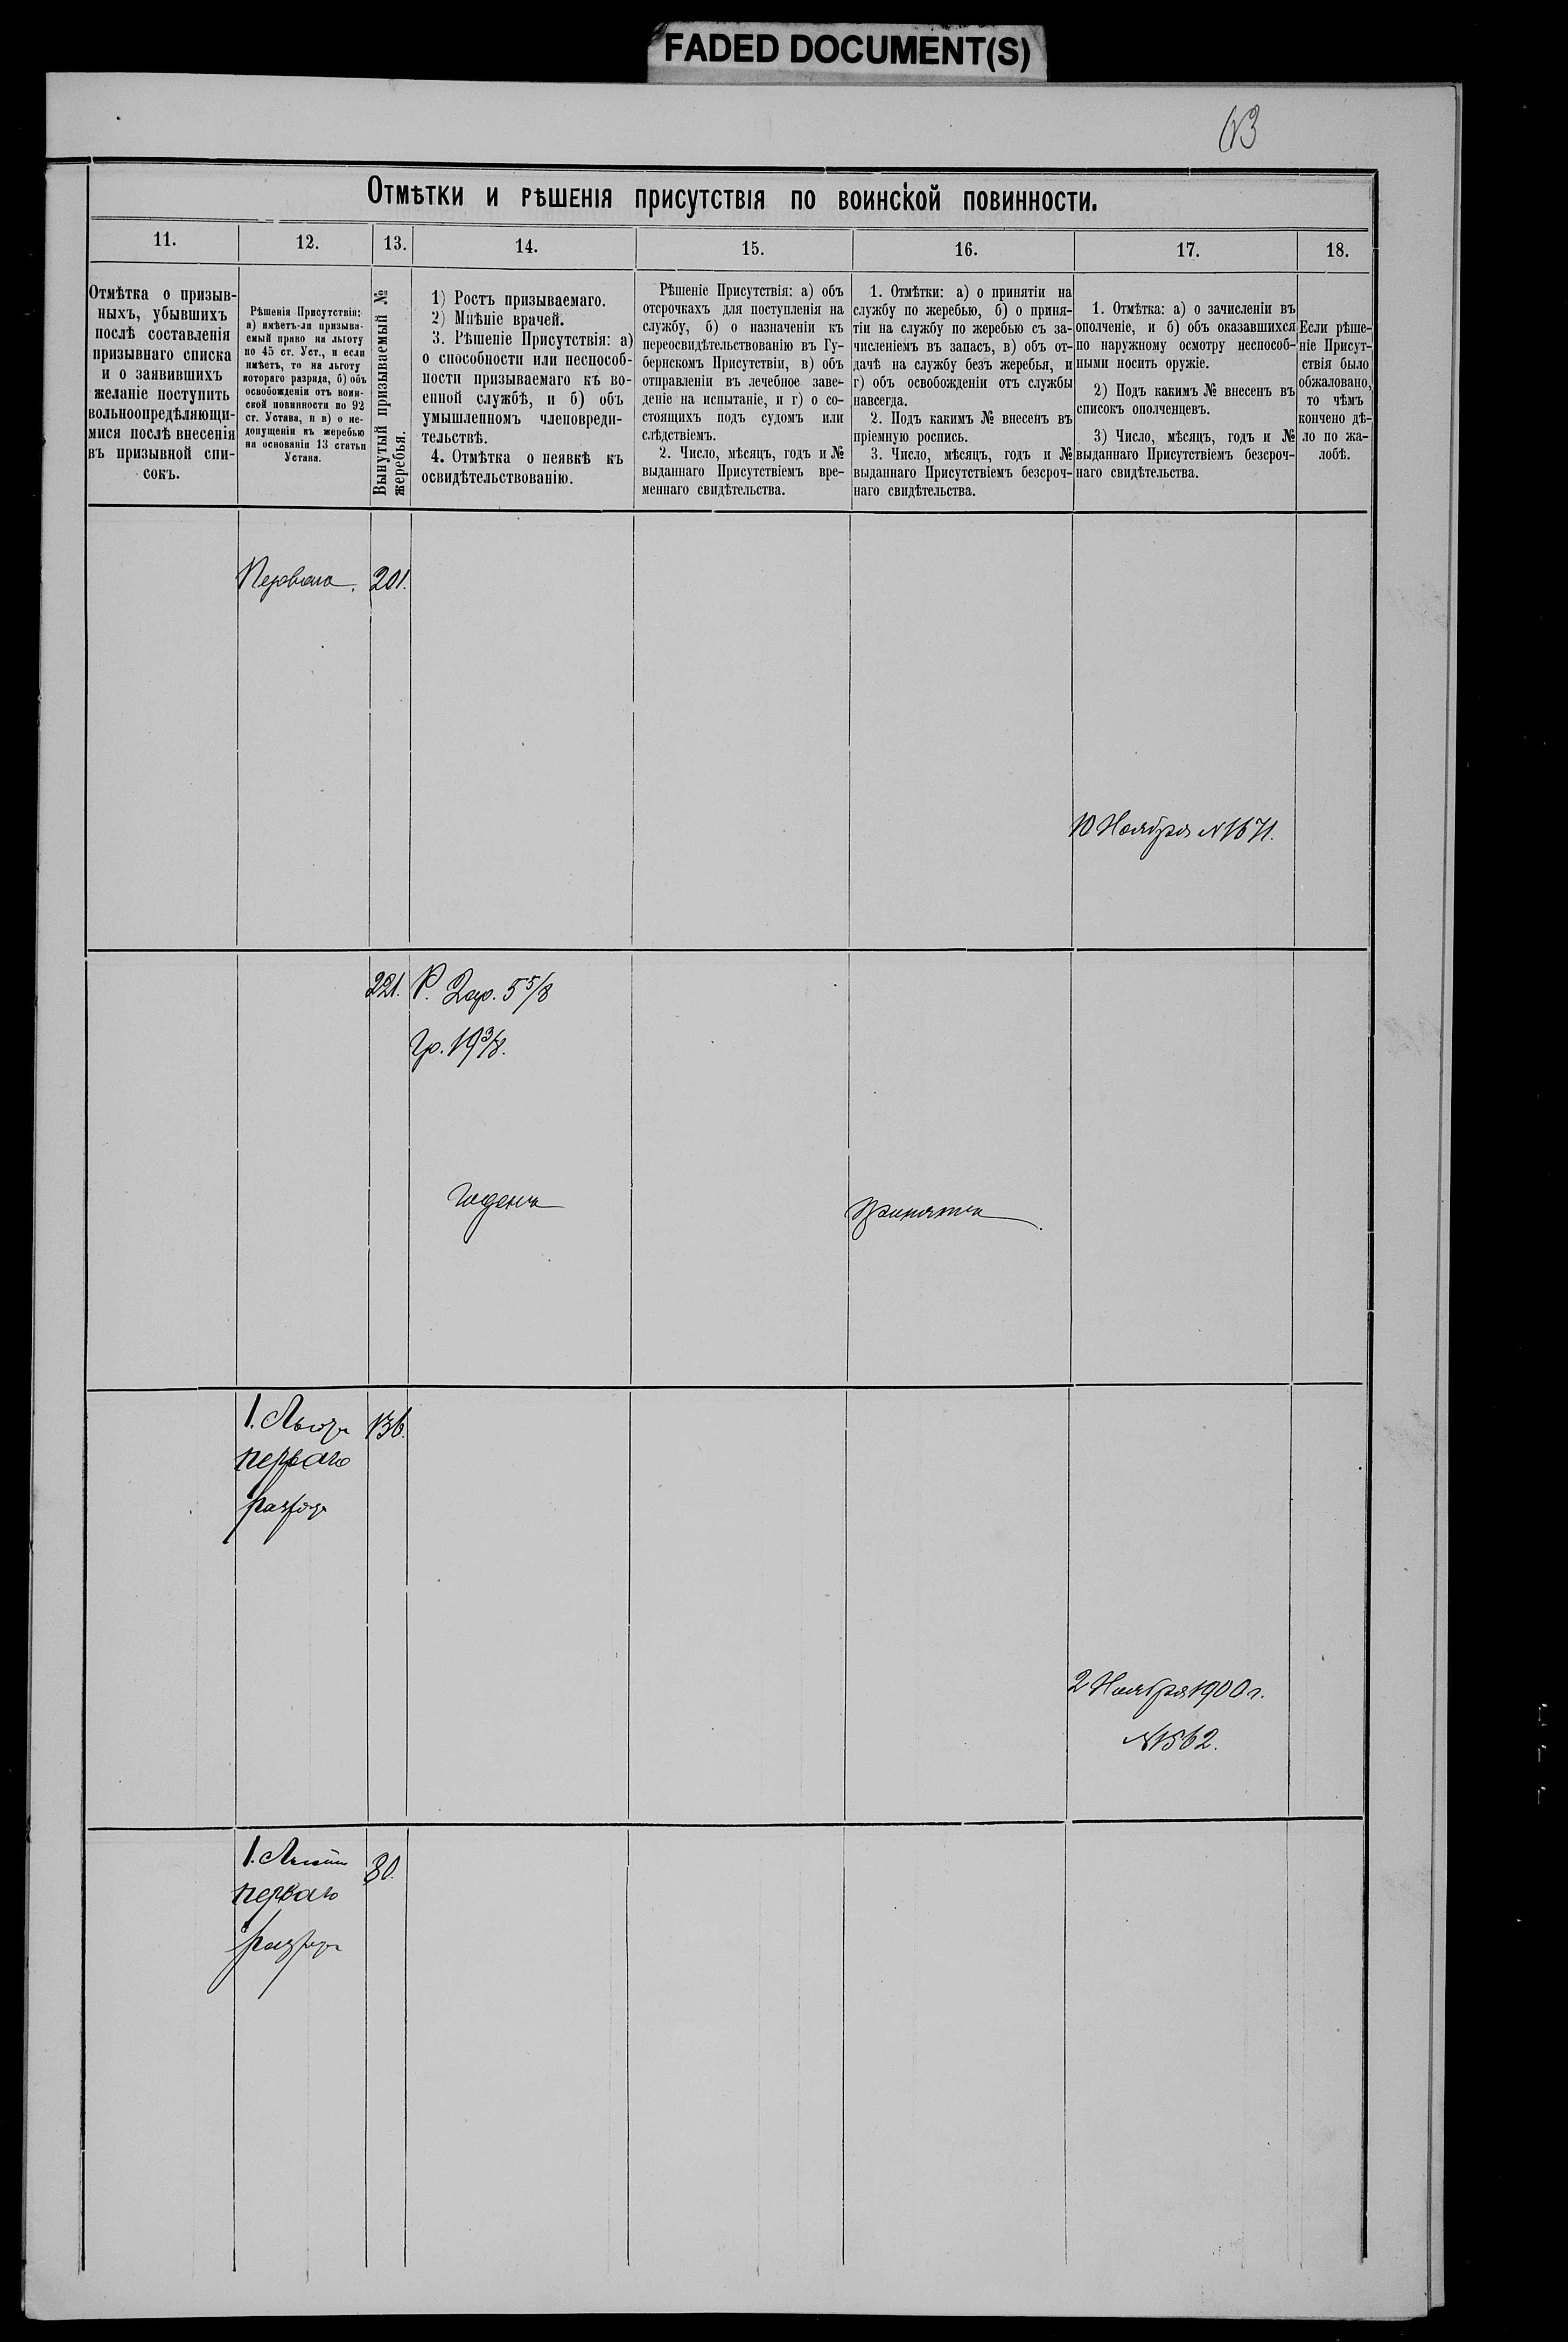 FADED DOCUMENT(S)
63
Отмѣтки и рѣшенія присутствія по воинской повинности.
11.
12.
13.
14.
15.
16.
17.
18.
Отмѣтка о призыв-
ныхъ, убывшихъ
послѣ составленія
призывнаго списка
и о заявившихъ
желаніе поступить
вольноопредѣляющи-
мися послѣ внесенія
въ призывной спи-
сокъ.
Рѣшенія Присутствія:
а) имѣетъ-ли призыва-
емый право на льготу
по 45 ст. Уст., и если
имѣетъ, то на льготу
котораго разряда, б) объ
освобожденіи отъ воин-
ской повинности по 92
ст. Устава, и в) о не-
допущеніи къ жеребью
на основаніи 13 статьи
Устава.
Вынутый призываемый №
жеребья.
1) Ростъ призываемаго.
2) Мнѣніе врачей.
3. Рѣшеніе Присутствія: а)
о способности или неспособ-
ности призываемаго къ во-
енной службѣ, и б) объ
умышленномъ членовреди-
тельствѣ.
4. Отмѣтка о неявкѣ къ
освидѣтельствованію.
Рѣшеніе Присутствія: а) объ
отсрочкахъ для поступленія на
службу, б) о назначеніи къ
переосвидѣтельствованію въ Гу-
бернскомъ Присутствіи, в) объ
отправленіи въ лечебное заве-
деніе на испытаніе, и г) о со-
стоящихъ подъ судомъ или
слѣдствіемъ.
2. Число, мѣсяцъ, годъ и №
выданнаго Присутствіемъ вре-
меннаго свидѣтельства.
1. Отмѣтки: а) о принятіи на
службу по жеребью, б) о приня-
тіи на службу по жеребью съ за-
численіемъ въ запасъ, в) объ от-
дачѣ на службу безъ жеребья, и
г) объ освобожденіи отъ службы
навсегда.
2. Подъ какимъ № внесенъ въ
пріемную роспись.
3. Число, мѣсяцъ, годъ и №
выданнаго Присутствіемъ безсроч-
наго свидѣтельства.
1. Отмѣтка: а) о зачисленіи въ
ополченіе, и б) объ оказавшихся
по наружному осмотру неспособ-
ными носить оружіе.
2) Подъ какимъ № внесенъ въ
списокъ ополченцевъ.
3) Число, мѣсяцъ, годъ и №
выданнаго Присутствіемъ безсроч-
наго свидѣтельства.
Если рѣше-
ніе Присут-
ствія было
обжаловано,
то чѣмъ
кончено дѣ-
ло по жа-
лобѣ.
Перваго. 201.
10 Ноября №1671.
221. Р. 2 ар. 5 5/8
Гр. 19 3/8.
Годенъ
Принятъ
1. Льгот 136.
перваго
разряда
2 Ноября 1900 г.
№1562.
1. Льготы 30.
перваго
разряда